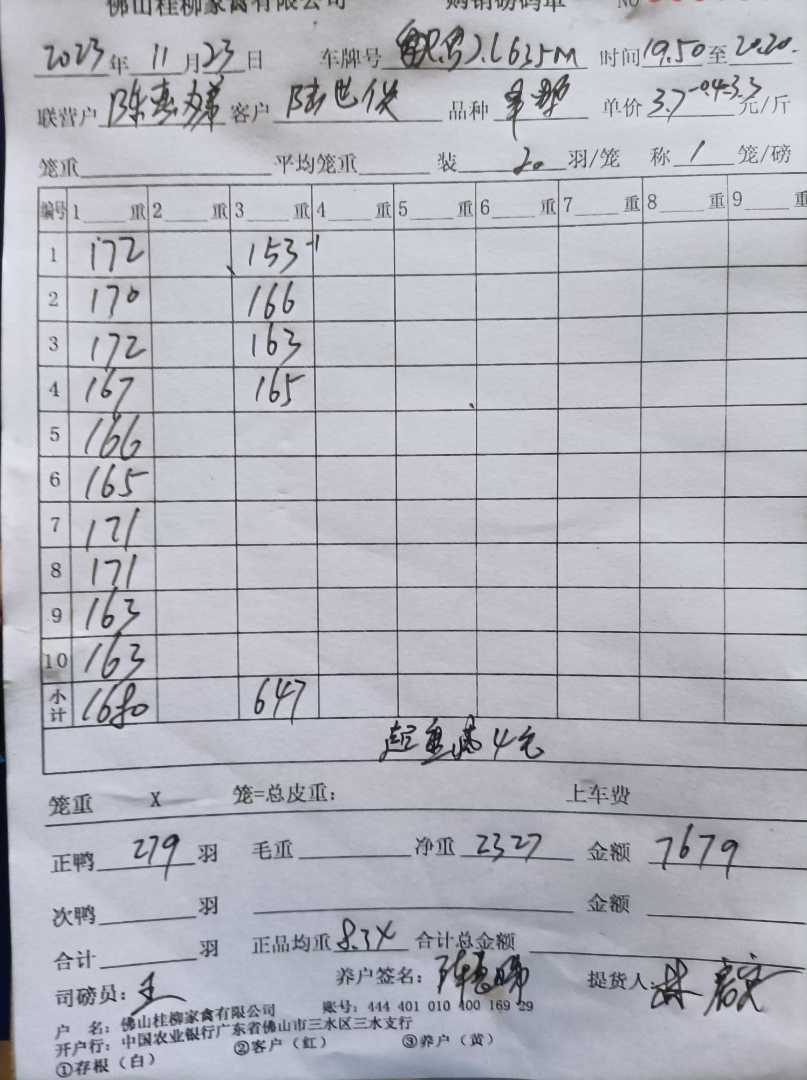 佛山桂柳家禽有限公司 购销磅码单 NO
2023年 11月23日 车牌号 L635M 时间19.50至20.20.
联营户 陈 客户 陆世 品种 单价3.7-0.4=3.3元/斤
笼重 平均笼重 装 20 羽/笼 称 1 笼/磅
编号 1 重 2 重 3 重 4 重 5 重 6 重 7 重 8 重 9 重
1 172 153-1
2 170 166
3 172 163
4 167 165
5 166
6 165
7 171
8 171
9 163
10 163
小计 1680 647
4元
笼重 X 笼=总皮重： 上车费
正鸭 279 羽 毛重 净重 2327 金额 7679
次鸭 羽 金额
合计 羽 正品均重 8.34 合计总金额
司磅员：王 养户签名：陈 提货人：林
户 名：佛山桂柳家禽有限公司 账号：444 401 010 400 169 29
开户行：中国农业银行广东省佛山市三水区三水支行
①存根（白） ②客户（红） ③养户（黄）